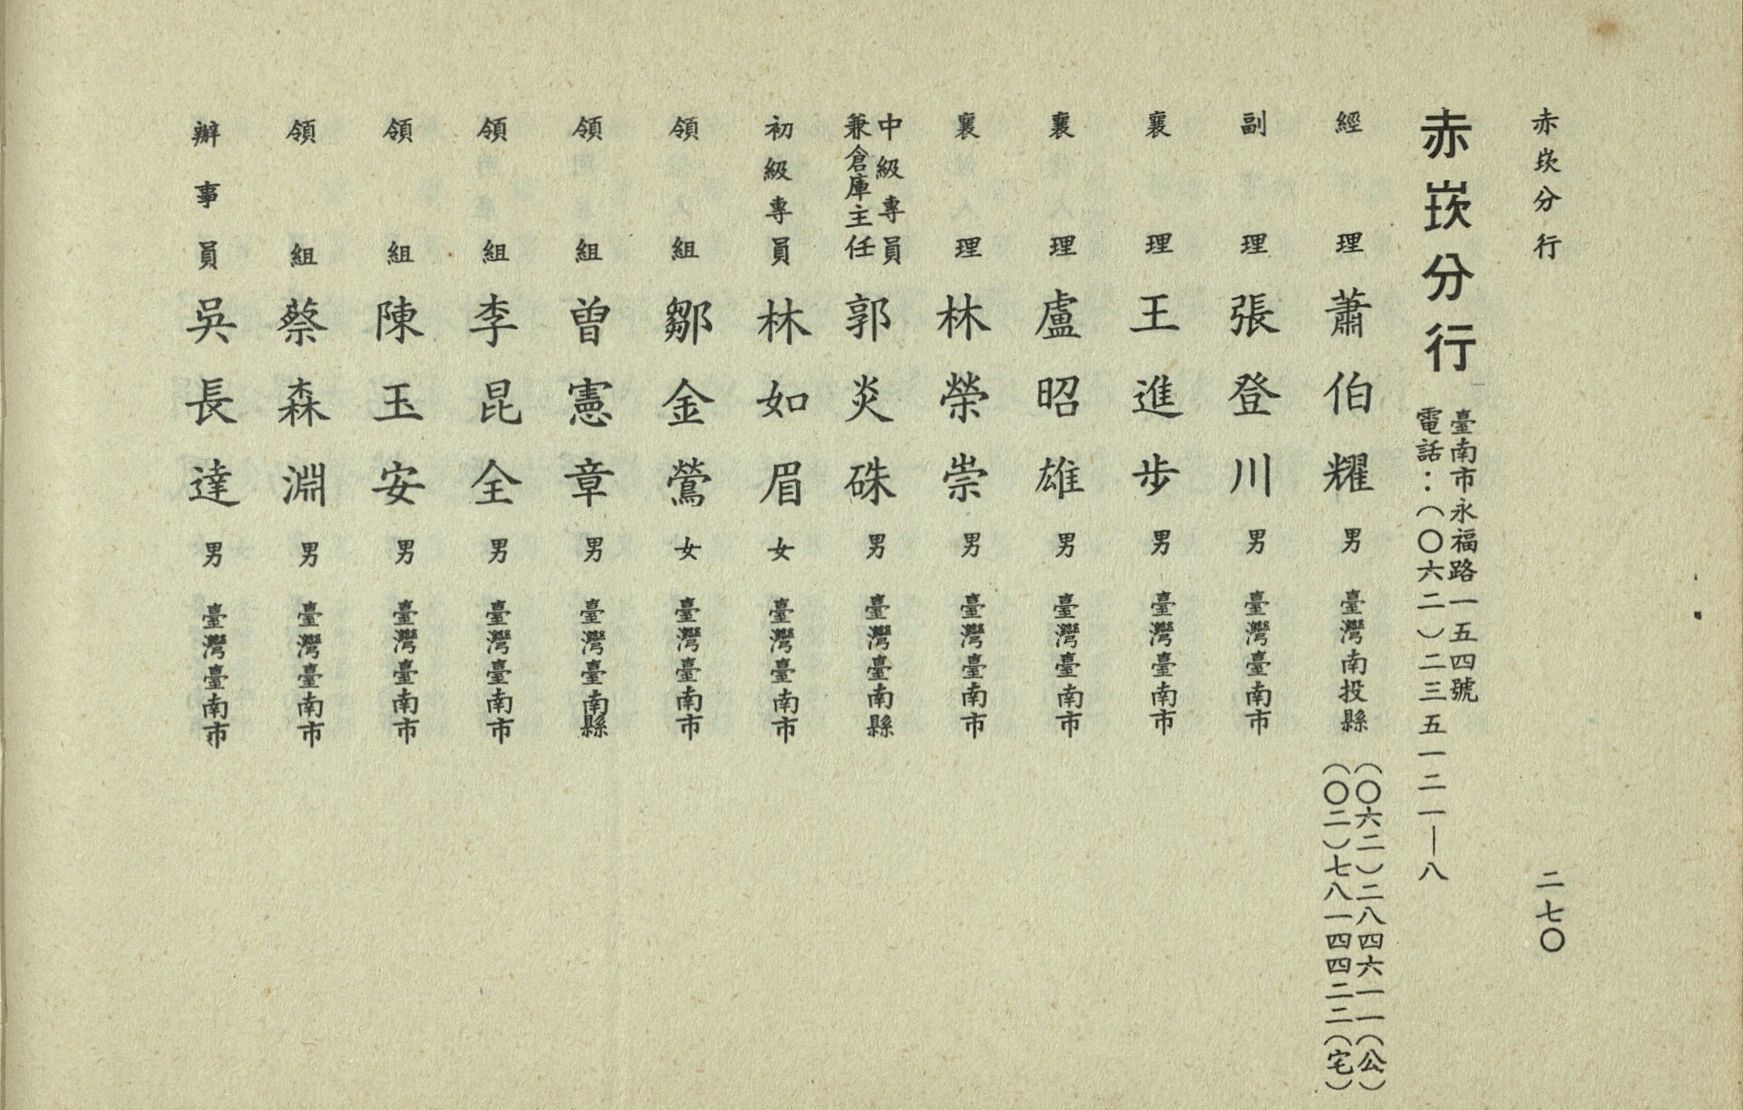 赤崁分行
二七〇
赤崁分行
臺南市永福路一五四號
電話：（〇六二）二三五一二一—八
經理 蕭伯耀 男 臺灣南投縣
（〇六二）二八四六一一（公）
（〇二）七八一四四二二（宅）
副理 張登川 男 臺灣臺南市
襄理 王進步 男 臺灣臺南市
襄理 盧昭雄 男 臺灣臺南市
襄理 林榮崇 男 臺灣臺南市
中級專員
兼倉庫主任 郭炎硃 男 臺灣臺南縣
初級專員 林如眉 女 臺灣臺南市
領組 鄒金鶯 女 臺灣臺南市
領組 曾憲章 男 臺灣臺南縣
領組 李昆全 男 臺灣臺南市
領組 陳玉安 男 臺灣臺南市
領組 蔡森淵 男 臺灣臺南市
辦事員 吳長達 男 臺灣臺南市